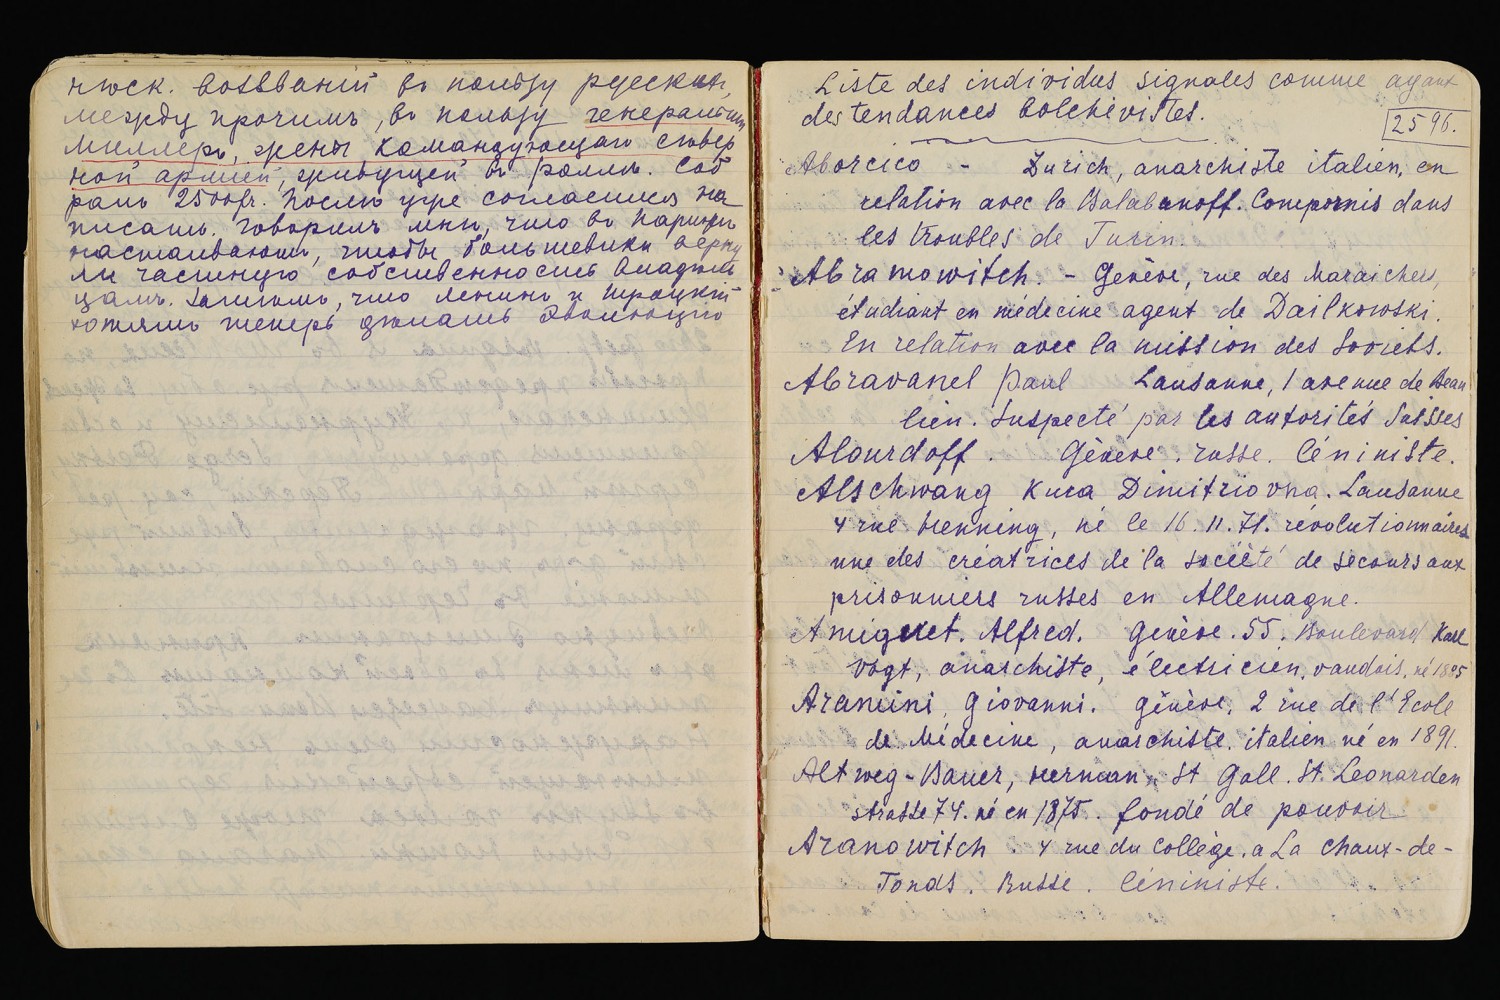 нѣск. воззваній въ пользу русскихъ,
между прочимъ, въ пользу генеральши
Миллеръ, жены командующаго сѣвер
ной арміей, живущей въ Роллѣ. Соб
ралъ 2500 fr. Послѣ уже согласился на
писать. Говорилъ мнѣ, что въ Парижѣ
настаиваютъ, чтобы большевики верну
ли частную собственность владѣль
цамъ. Затѣмъ, что Ленинъ и Троцкій
хотятъ теперь дѣлать эволюцію
Liste des individus signalés comme ayant
des tendances bolchévistes.
2596.
Aborcico - Zurich, anarchiste italien, en
relation avec la Balabanoff. Compromis dans
les troubles de Turin.
Abramowitch. - Genève, rue des Maraichers,
étudiant en médecine agent de Dailkowski.
En relation avec la mission des Soviets.
Abravanel Paul Lausanne, 1 avenue de Beau
lieu. Suspecté par les autorités Suisses
Alourdoff. Génève. russe. Léniniste.
Alschwang Dimitriovna. Lausanne
4 rue né le 16.11.71. révolutionnaires
une des créatrices de la société de secours aux
prisonniers russes en Allemagne.
Amiguet. Alfred. Genève. 55. Boulevard Karl
Vogt, anarchiste, électricien, vaudois, né 1895
Aramini, Giovanni. Génève, 2 rue de l'Ecole
de Médecine, anarchiste, italien né en 1891.
Altweg-Bauer, Herman, St Gall. St. Leonarden
strasse 74. né en 1875. fondé de pouvoir
Aranowitch. 4 rue du Collège, a La Chaux-de-
Fonds. Russe. Léniniste.